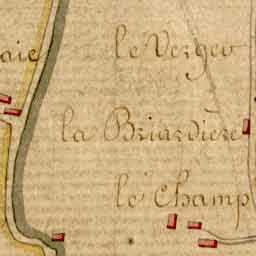 aie
le Verger
la Briardière
le Champ